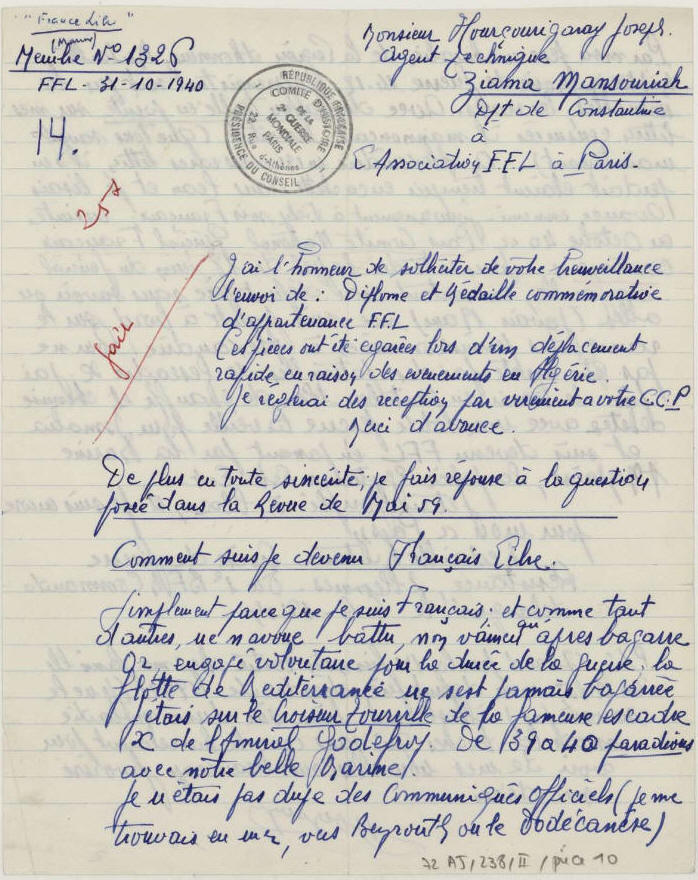 "France Libre"
(Maroc)
Membre N° 1326
FFL - 31-10-1940
14.
257
fait
Monsieur Hourçourigaray Joseph.
Agent Technique
Ziama Mansouriah
Dpt de Constantine
à
L'Association FFL à Paris.
RÉPUBLIQUE FRANÇAISE
PRÉSIDENCE DU CONSEIL
COMITÉ D'HISTOIRE
DE LA
2e GUERRE
MONDIALE
PARIS
22 Rue d'Athènes
J'ai l'honneur de solliciter de votre bienveillance
l'envoi de : Diplome et Médaille commémorative
d'appartenance F.F.L
Ces pièces ont été égarées lors d'un déplacement
rapide en raison des evenements en Algérie.
Je règlerai dès reception par virement a votre C.C.P
Merci d'avance.
De plus en toute sincérité, je fais réponse à la question
posée dans la Revue de Mai 59.
Comment suis je devenu Français Libre.
Simplement parce que je suis Français; et comme tant
d'autres, ne m'avoue battu, non vaincu qu'après bagarre
Or, engagé volontaire pour la durée de la guerre: la
flotte de Mediterranée ne sest jamais bagarrée
J'étais sur le Croiseur Tourville de la fameuse escadre
X de l'Amiral Godefroy. De 39 a 40 paradions
avec notre belle Marine/
Je n'étais pas dupe des Communiqués Officiels (je me
trouvais en mer, vers Beyrouth ou le Dodécanèse)
72 AJ/238/II / pièce 10